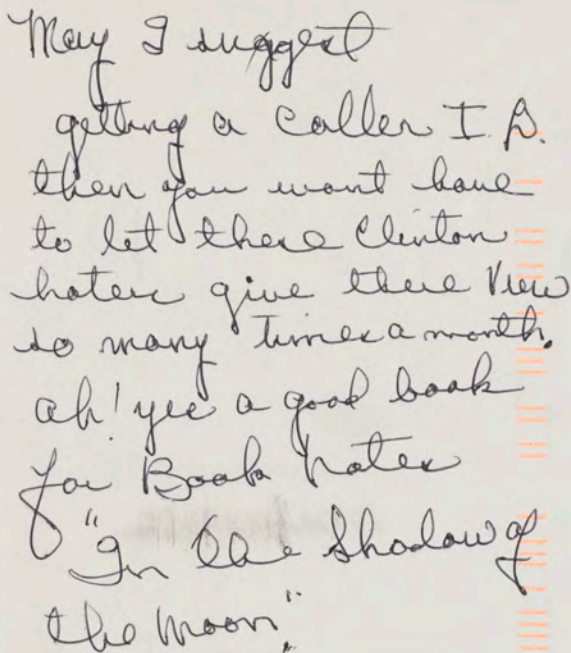 May I suggest
getting a caller I.D.
then you wont have
to let these Clinton
haters give there View
so many times a month.
ah! yes a good book
for Book notes
"In the Shadow of
the Moon".